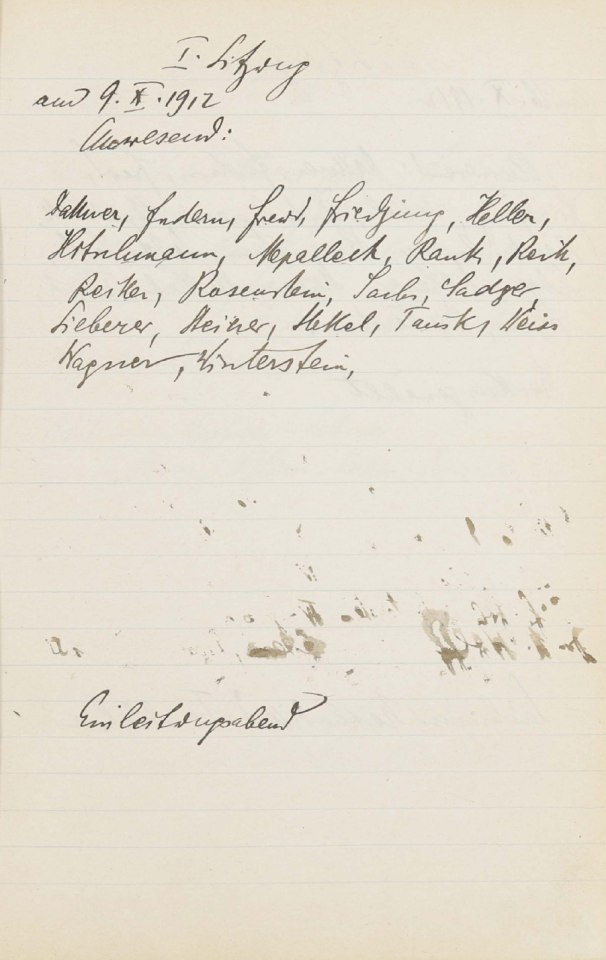 I. Sitzung
am 9. X. 1912
Anwesend:
Dattner, Federn, Freud, Friedjung, Heller,
Hitschmann, Nepalleck, Rank, Reik,
Reitler, Rosenstein, Sachs, Sadger,
Sieberer, Steiner, Stekel, Tausk, Weiss
Wagner, Winterstein,
Einleitungsabend